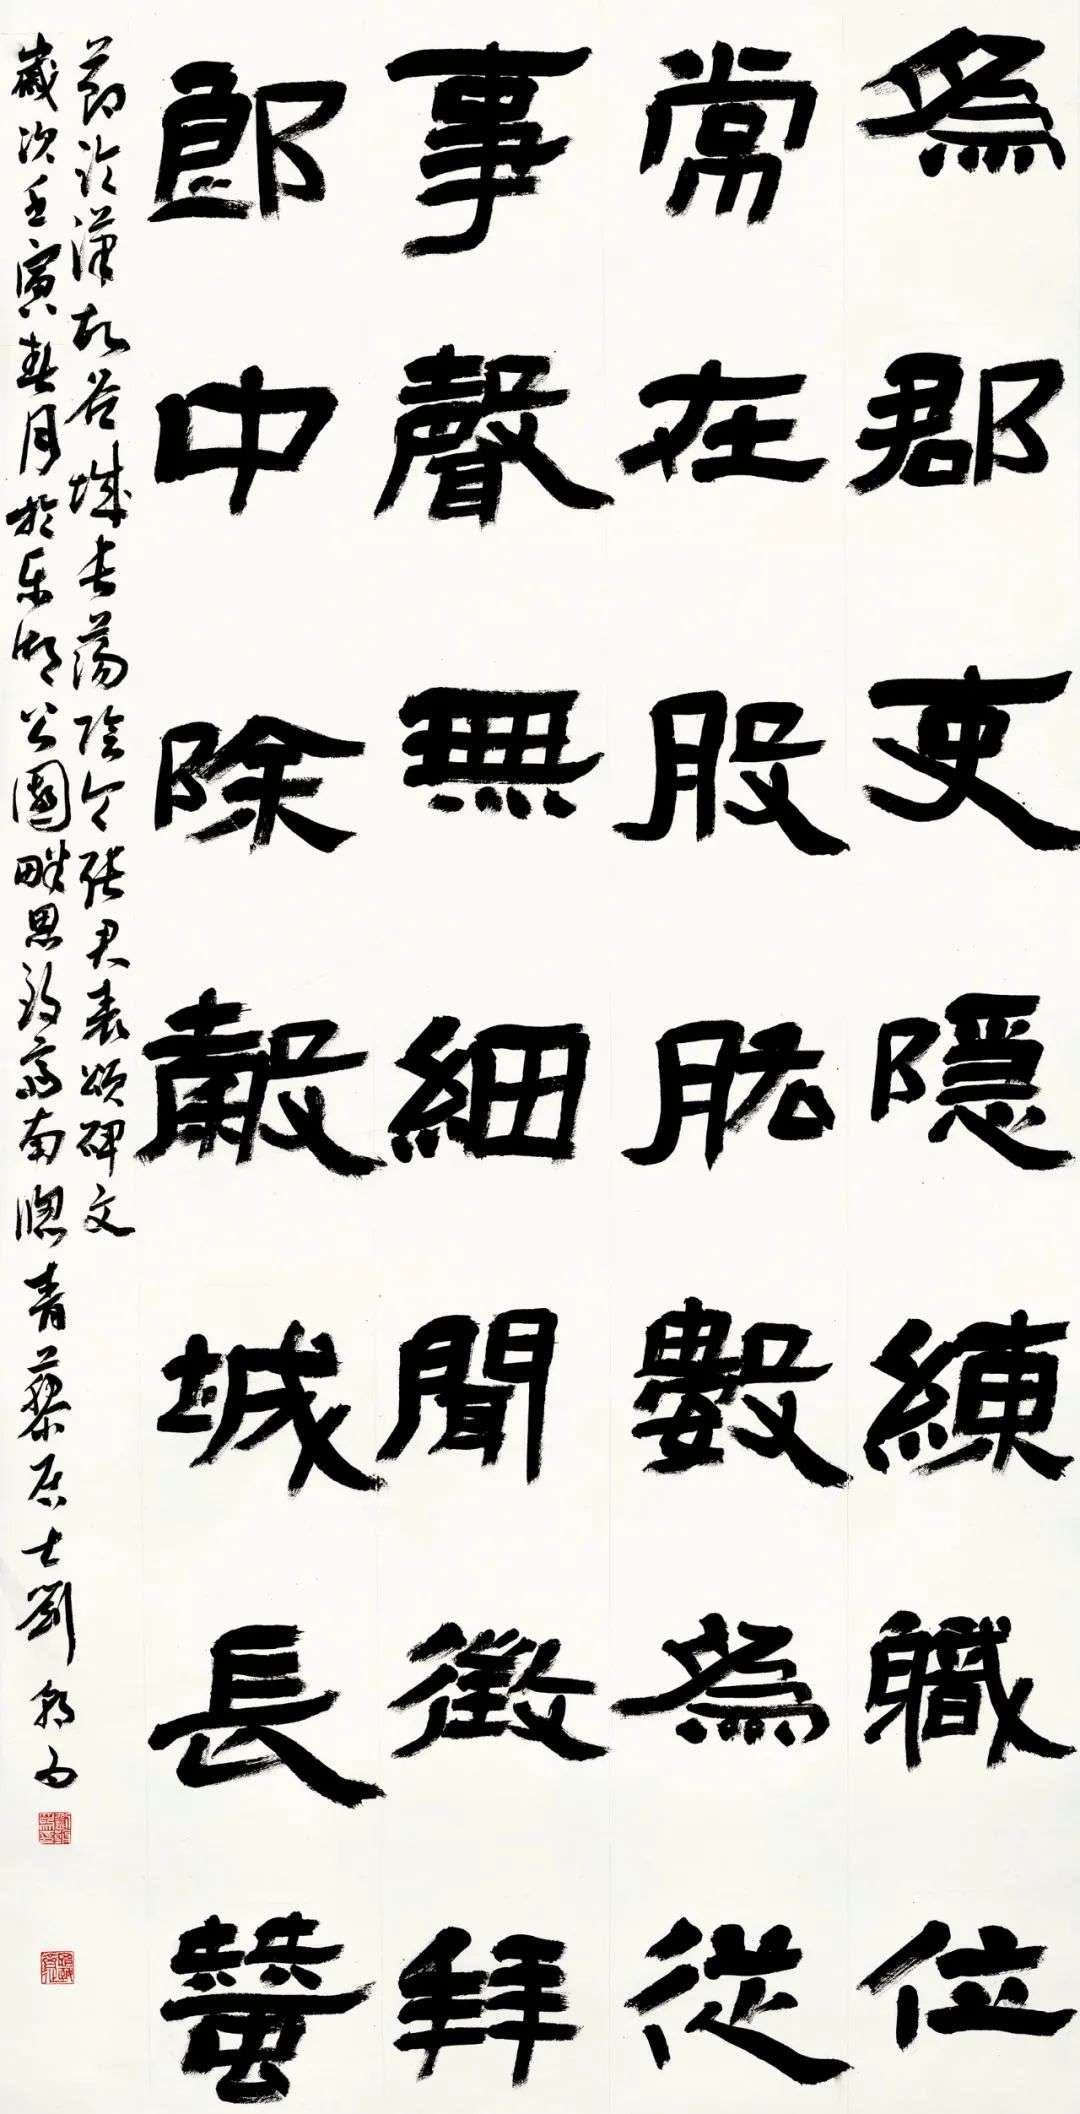 為郡吏隱練職位
常在股肱數為從
事聲無細聞徵拜
郎中除穀城長蠶
節臨漢故谷城長蕩陰令張君表頌碑文
歲次壬寅春月於東湖公園畔思政齋南窗青藜居士劉